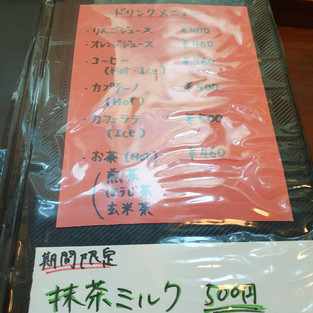 ドリンクメニュー
・りんごジュース ¥400
・オレンジジュース ¥400
・コーヒー ¥460
(Hot・Ice)
・カプチーノ ¥500
(Hot)
・カフェラテ ¥500
(Ice)
・お茶 (Hot) ¥460
煎茶
ほうじ茶
玄米茶
期間限定
抹茶ミルク 500円